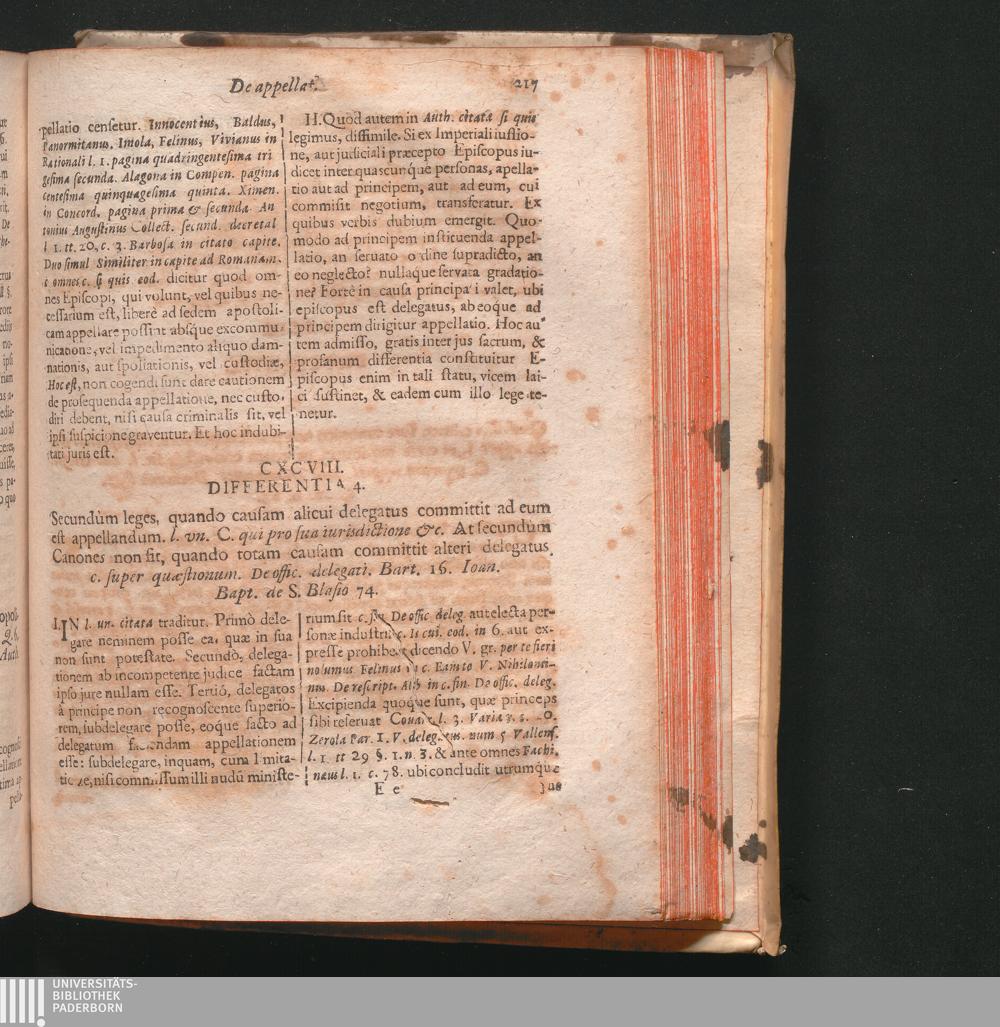 De appellat. 217
pellatio censetur. Innocentius, Baldus,
Panormitanus, Imola, Felinus, Vivianus in
Rationali l. 1. pagina quadringentesima tri
gesima secunda. Alagona in Compen. pagina
centesima quinquagesima quinta. Ximen.
in Concord. pagina prima & secunda. An
tonius Augustinus Collect. secund. decretal
l 1. tt. 20, c. 3. Barbosa in citato capite.
Duo simul Similiter in capite ad Romanam.
c omnes c. si quis eod. dicitur quod om-
nes Episcopi, qui volunt, vel quibus ne-
cessarium est, liberè ad sedem apostoli-
cam appellare possint absque excommu
nicatione, vel impedimento aliquo dam-
nationis, aut spoliationis, vel custodiæ,
Hoc est, non cogendi sunt dare cautionem
de prosequenda appellatione, nec custo.
diri debent, nisi causa criminalis sit, vel
ipsi suspicione graventur. Et hoc indubi-
tati juris est.
H. Quod autem in Auth. citata si quis
legimus, dissimile. Si ex Imperiali iussio-
ne, aut judiciali præcepto Episcopus iu-
dicet inter quascunque personas, apella-
tio aut ad principem, aut ad eum, cui
commisit negotium, transferatur. Ex
quibus verbis dubium emergit. Quo-
modo ad principem instituenda appel-
latio, an servato o dine supradicto, an
eo neglecto? nullaque servata gradatio-
ne? Fortè in causa principa i valet, ubi
episcopus est delegatus, ab eoque ad
principem dirigitur appellatio. Hoc au
tem admisso, gratis inter jus sacrum, &
profanum differentia constituitur E-
piscopus enim in tali statu, vicem lai-
ci sustinet, & eadem cum illo lege te-
netur.
CXCVIII.
DIFFERENTIA 4.
Secundùm leges, quando causam alicui delegatus committit ad eum
est appellandum. l. vn. C. qui pro sua iurisdictione &c. At secundùm
Canones non sit, quando totam causam committit alteri delegatus.
c. super quæstionum. De offic. delegati. Bart. 16. Ioan.
Bapt. de S. Blasio 74.
I. IN l. un. citata traditur. Primò dele-
gare neminem posse ea, quæ in sua
non sunt potestate. Secundò, delega-
tionem ab incompetente judice factam
ipso jure nullam esse. Tertiò, delegatos
à principe non recognoscente superio-
rem, subdelegare posse, eoque facto ad
delegatum faciendam appellationem
esse: subdelegare, inquam, cum limita-
tione, nisi commissum illi nudū ministe-
rium sit c. fin. De offic deleg. aut electa per-
sonæ industria c. Is cui. eod. in 6. aut ex-
presse prohibeat dicendo V. gr. per te fieri
nolumus Felinus in c. Eam te V. Nihilomi-
nus. De rescript. Abb in c. fin. De offic. deleg.
Excipienda quoque sunt, quæ princeps
sibi reservat l. 3. Variar.
Zerola Par. 1. V. delegatus. num 5 Vallens.
l. 1 tt 29 §. 1. n 3. & ante omnes Fachi.
naus l. 1. c. 78. ubi concludit utrumque
E e jus
UNIVERSITÄTS-
BIBLIOTHEK
PADERBORN